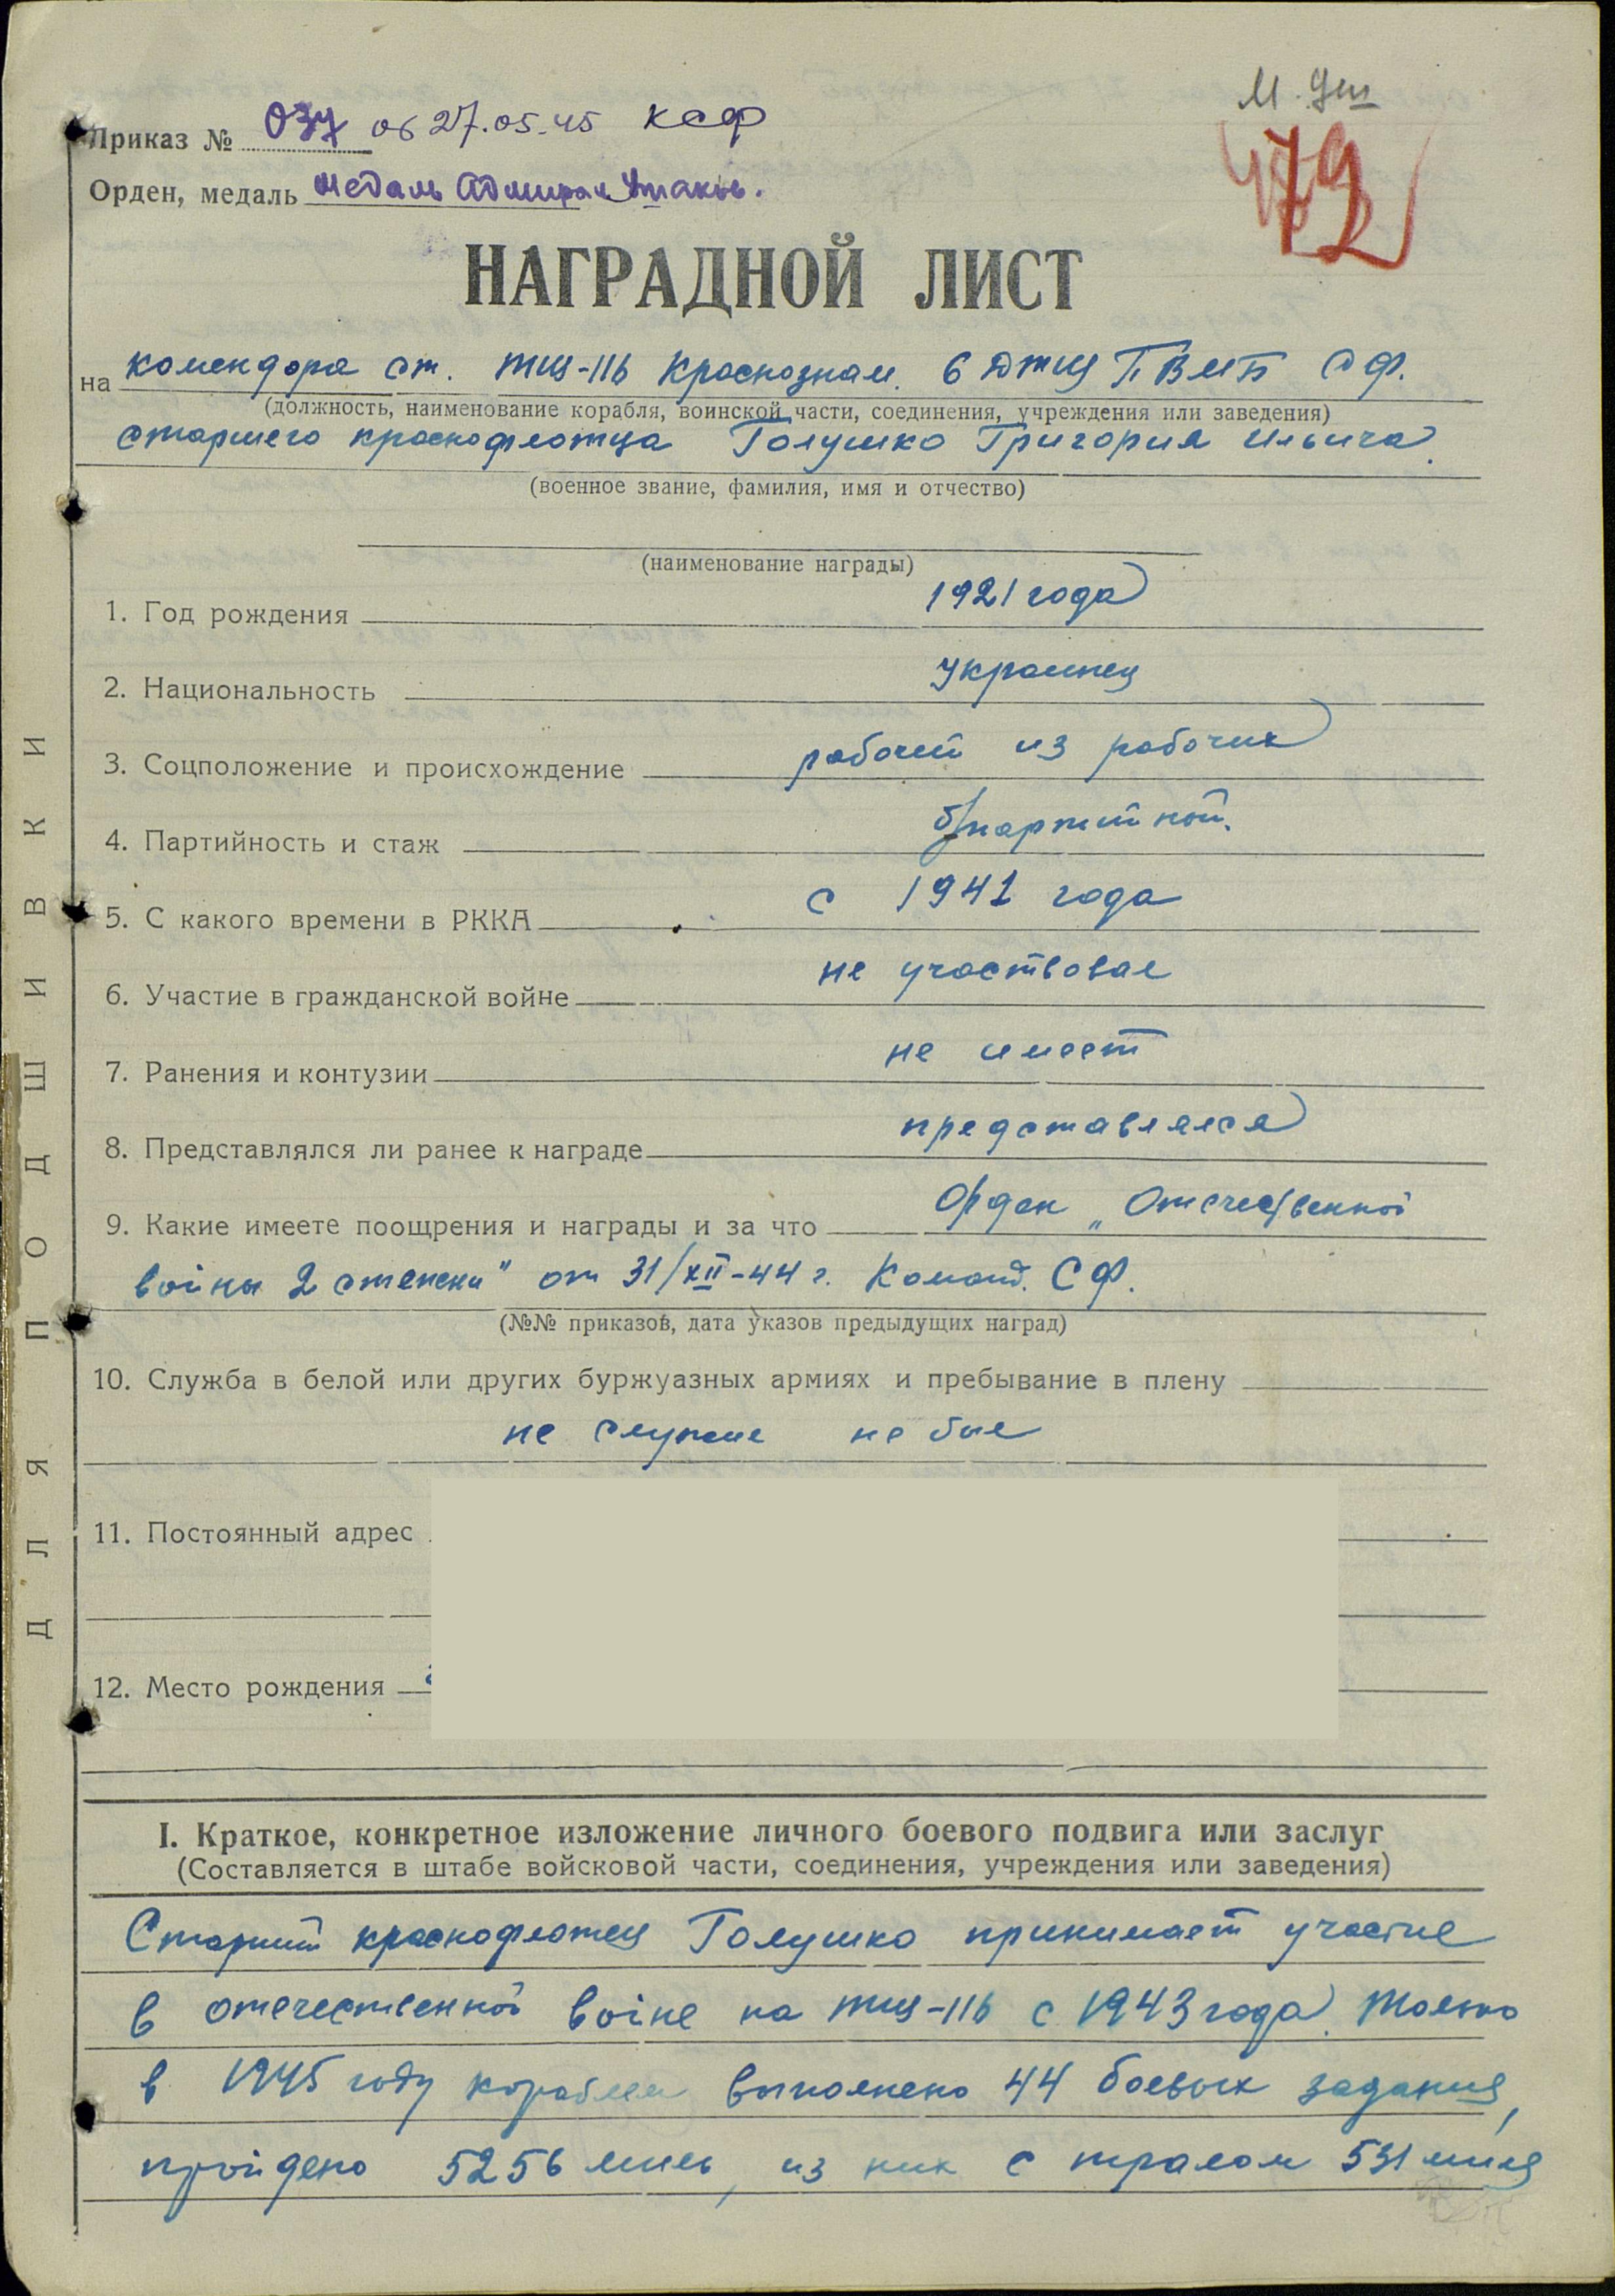 М. Уш
479
Приказ № 037 об 27.05.45 КСФ
Орден, медаль Медаль Адмирал Ушаков.
НАГРАДНОЙ ЛИСТ
на комендора ст. ТЩ-116 Краснознам. 6 ДТЩ ПВМБ СФ.
(должность, наименование корабля, воинской части, соединения, учреждения или заведения)
старшего краснофлотца Голушко Григория Ильича.
(военное звание, фамилия, имя и отчество)
(наименование награды)
1. Год рождения 1921 года
2. Национальность украинец
3. Соцположение и происхождение рабочий из рабочих
4. Партийность и стаж б/партийной.
5. С какого времени в РККА с 1941 года
6. Участие в гражданской войне не участвовал
7. Ранения и контузии не имеет
8. Представлялся ли ранее к награде представлялся
9. Какие имеете поощрения и награды и за что Орден „Отечественной
войны 2 степени" от 31/XII-44 г. Команд. СФ.
(№№ приказов, дата указов предыдущих наград)
10. Служба в белой или других буржуазных армиях и пребывание в плену
не служил не был
11. Постоянный адрес
12. Место рождения
I. Краткое, конкретное изложение личного боевого подвига или заслуг
(Составляется в штабе войсковой части, соединения, учреждения или заведения)
Старший краснофлотец Голушко принимает участие
в отечественной войне на ТЩ-116 с 1943 года. Только
в 1945 году кораблем выполнено 44 боевых задания,
пройдено 5256 миль, из них с тралом 531 миля
ДЛЯ ПОДШИВКИ